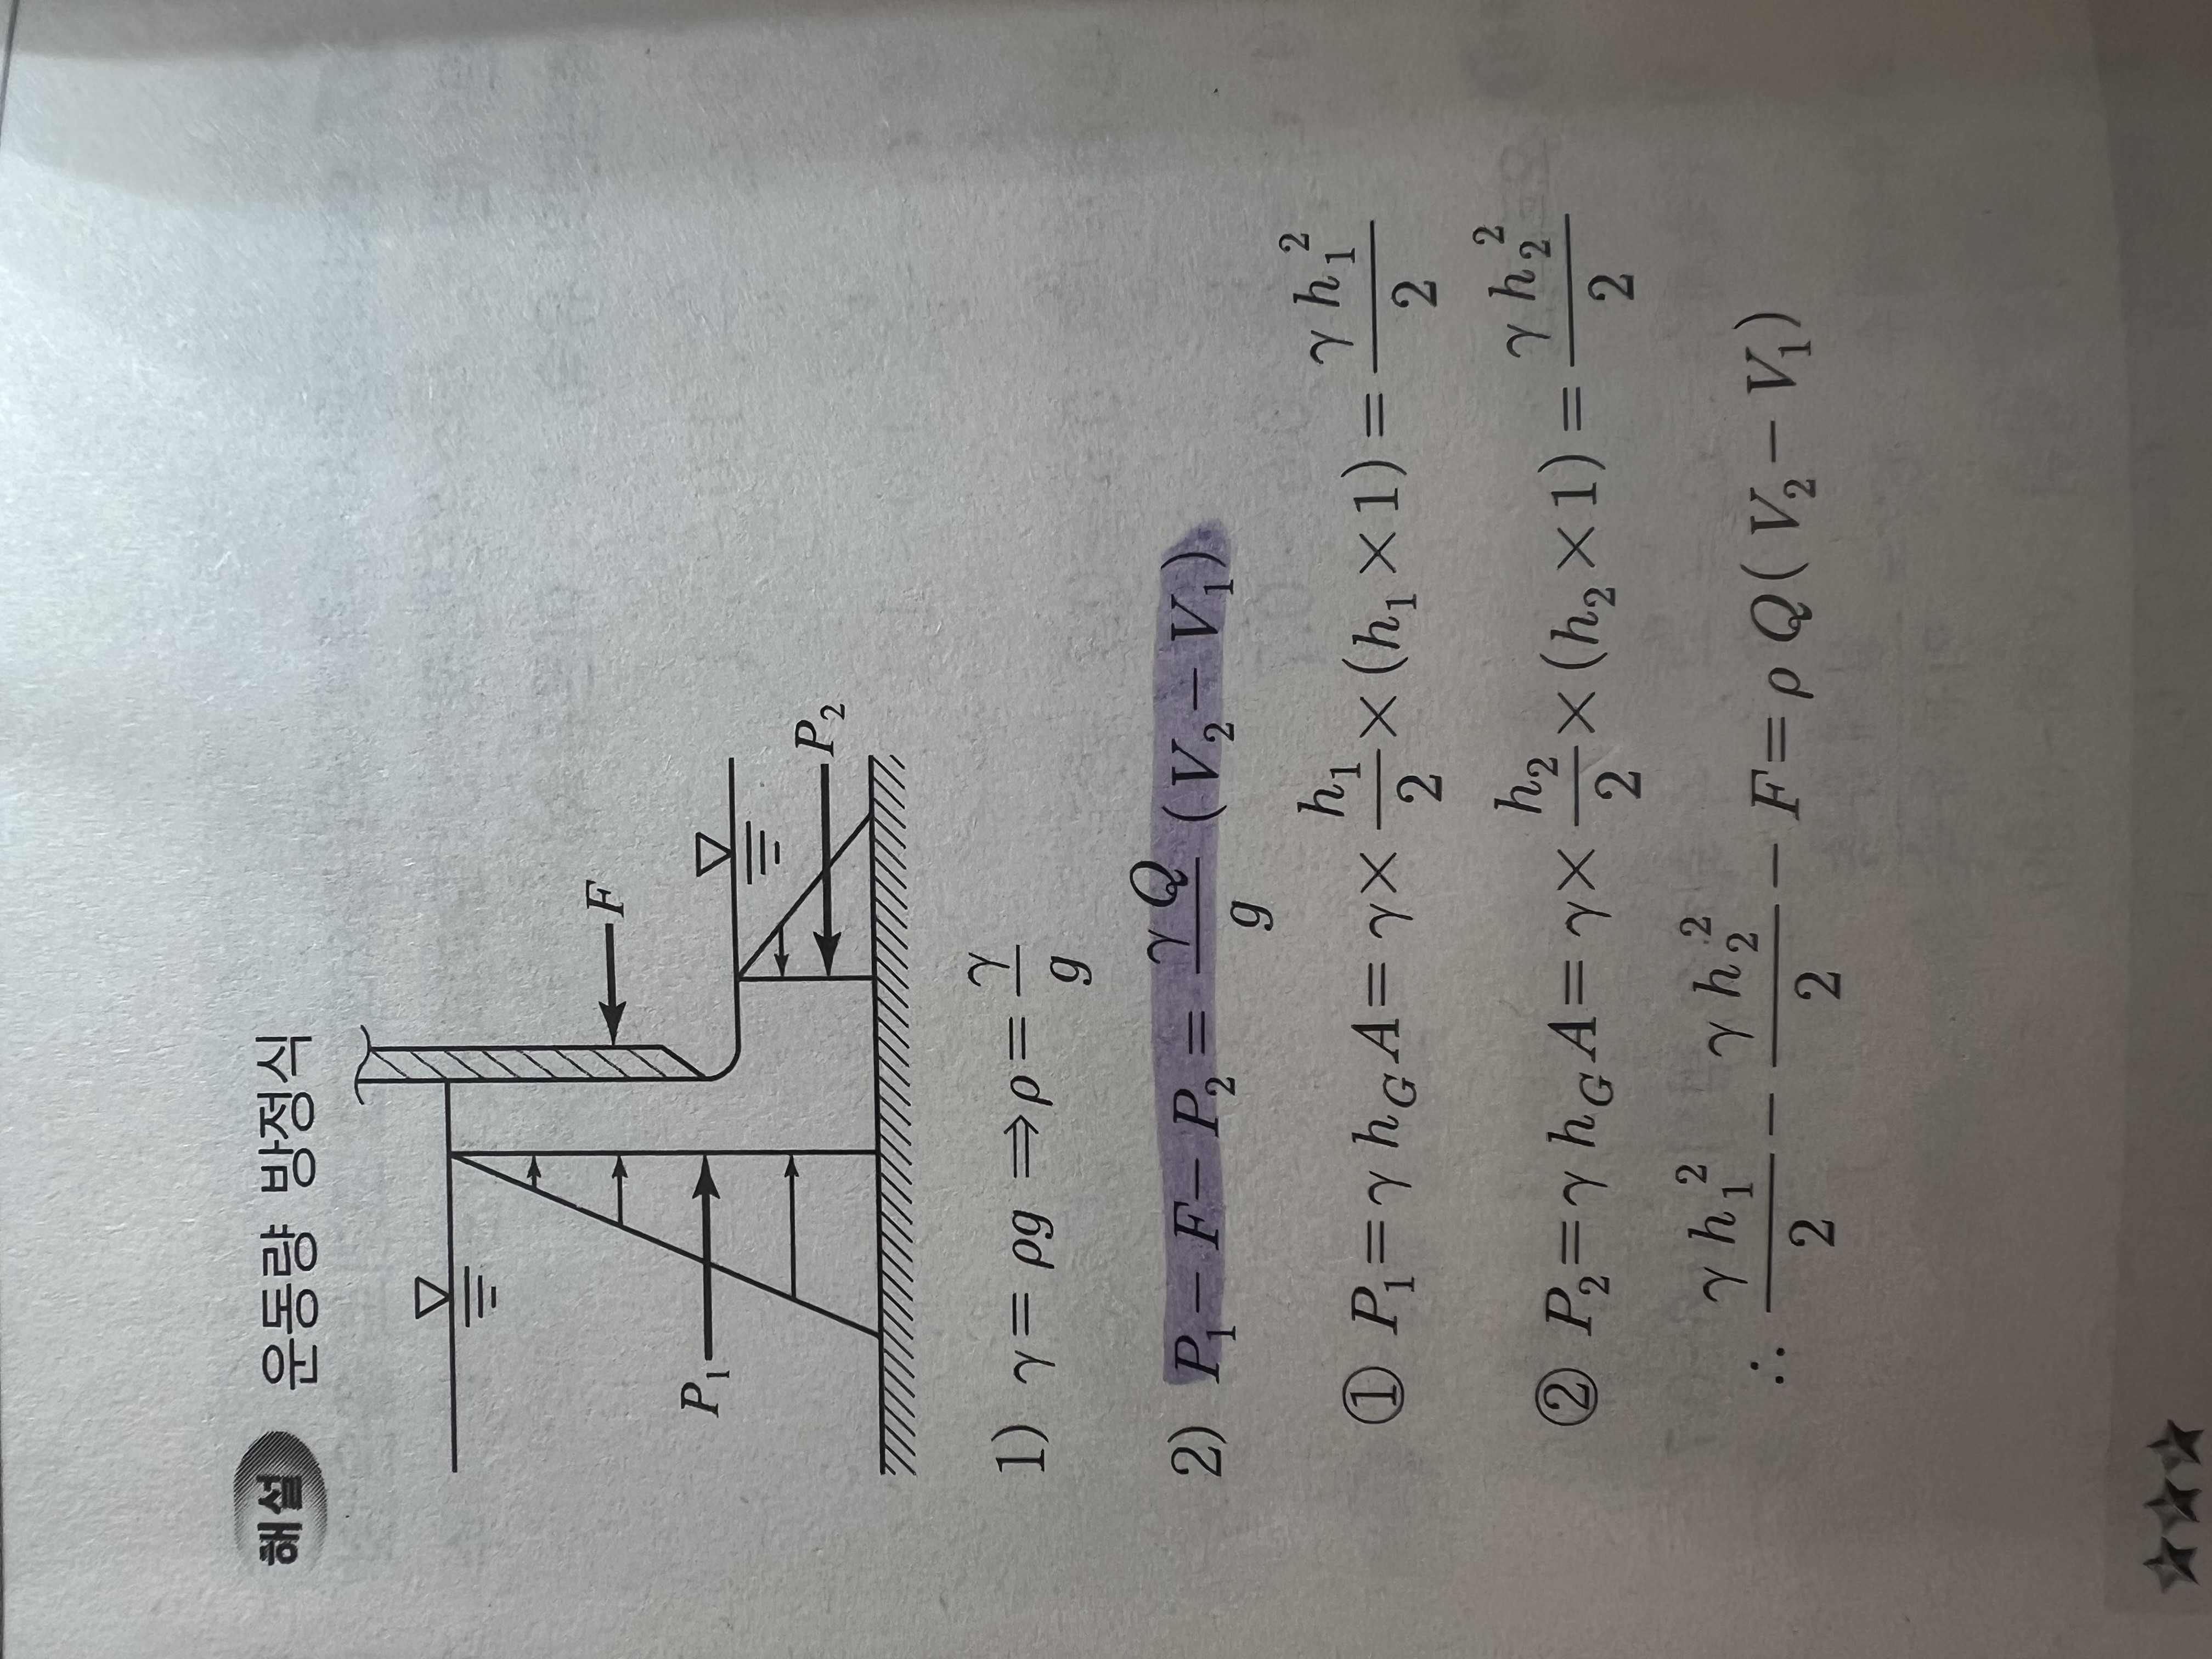 해설 운동량 방정식
P₁
F
P₂
1) γ = ρg ⇒ ρ = γ/g
2) P₁ − F − P₂ = γQ/g (V₂ − V₁)
① P₁ = γ h_G A = γ × h₁/2 × (h₁ × 1) = γ h₁²/2
② P₂ = γ h_G A = γ × h₂/2 × (h₂ × 1) = γ h₂²/2
∴ γ h₁²/2 − γ h₂²/2 − F = ρ Q (V₂ − V₁)
★★★